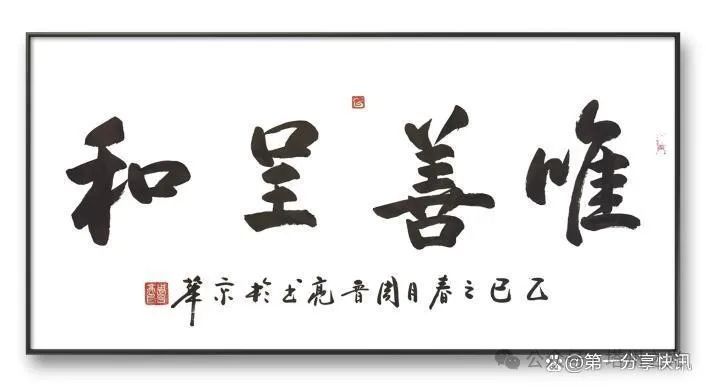 唯善呈和
乙巳之春月周晋亮书於京華
@第一分享快讯